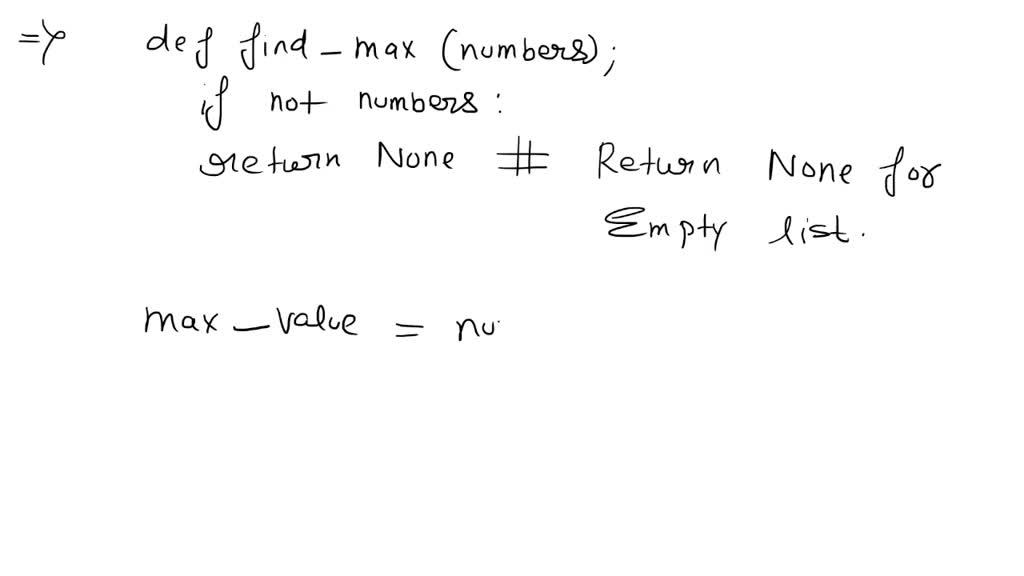 => def find_max (numbers);
if not numbers:
return None # Return None for
Empty list.
max_value = nu